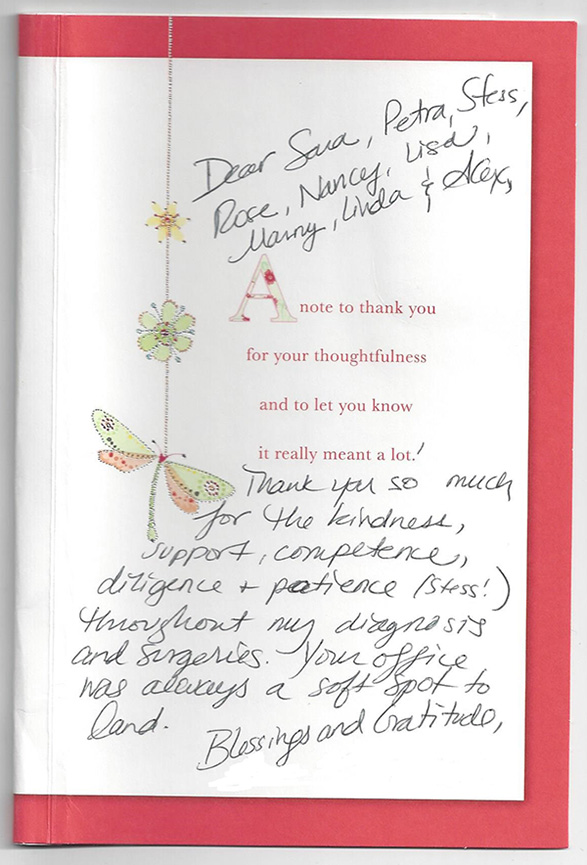 Dear Sara, Petra, Stess,
Rose, Nancy, Lisa,
Manny, Linda & Alex,
A note to thank you
for your thoughtfulness
and to let you know
it really meant a lot.!
Thank you so much
for the kindness,
support, competence,
diligence + patience (Stess!)
throughout my diagnosis
and surgeries. Your office
was always a soft spot to
land.
Blessings and Gratitude,